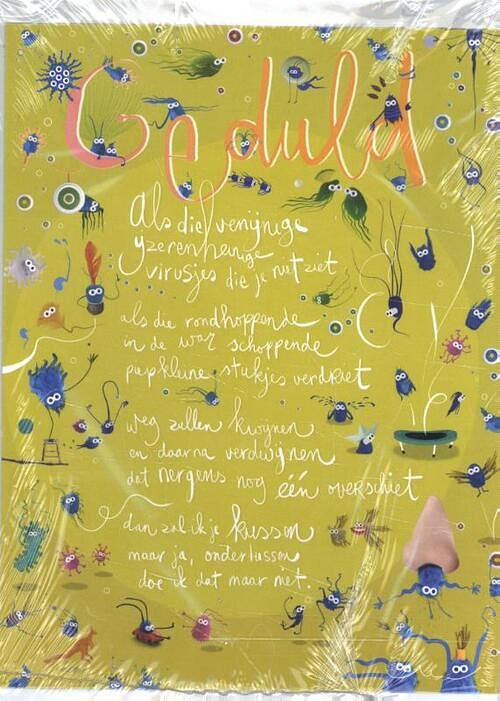 Geduld
als die venijnige
ijzerenheinige
virusjes die je niet ziet
als die rondhoppende
in de war schoppende
piepkleine stukjes verdriet
weg zullen kwijnen
en daarna verdwijnen
dat nergens nog één overschiet
dan zal ik je kussen
maar ja, ondertussen
doe ik dat maar niet.